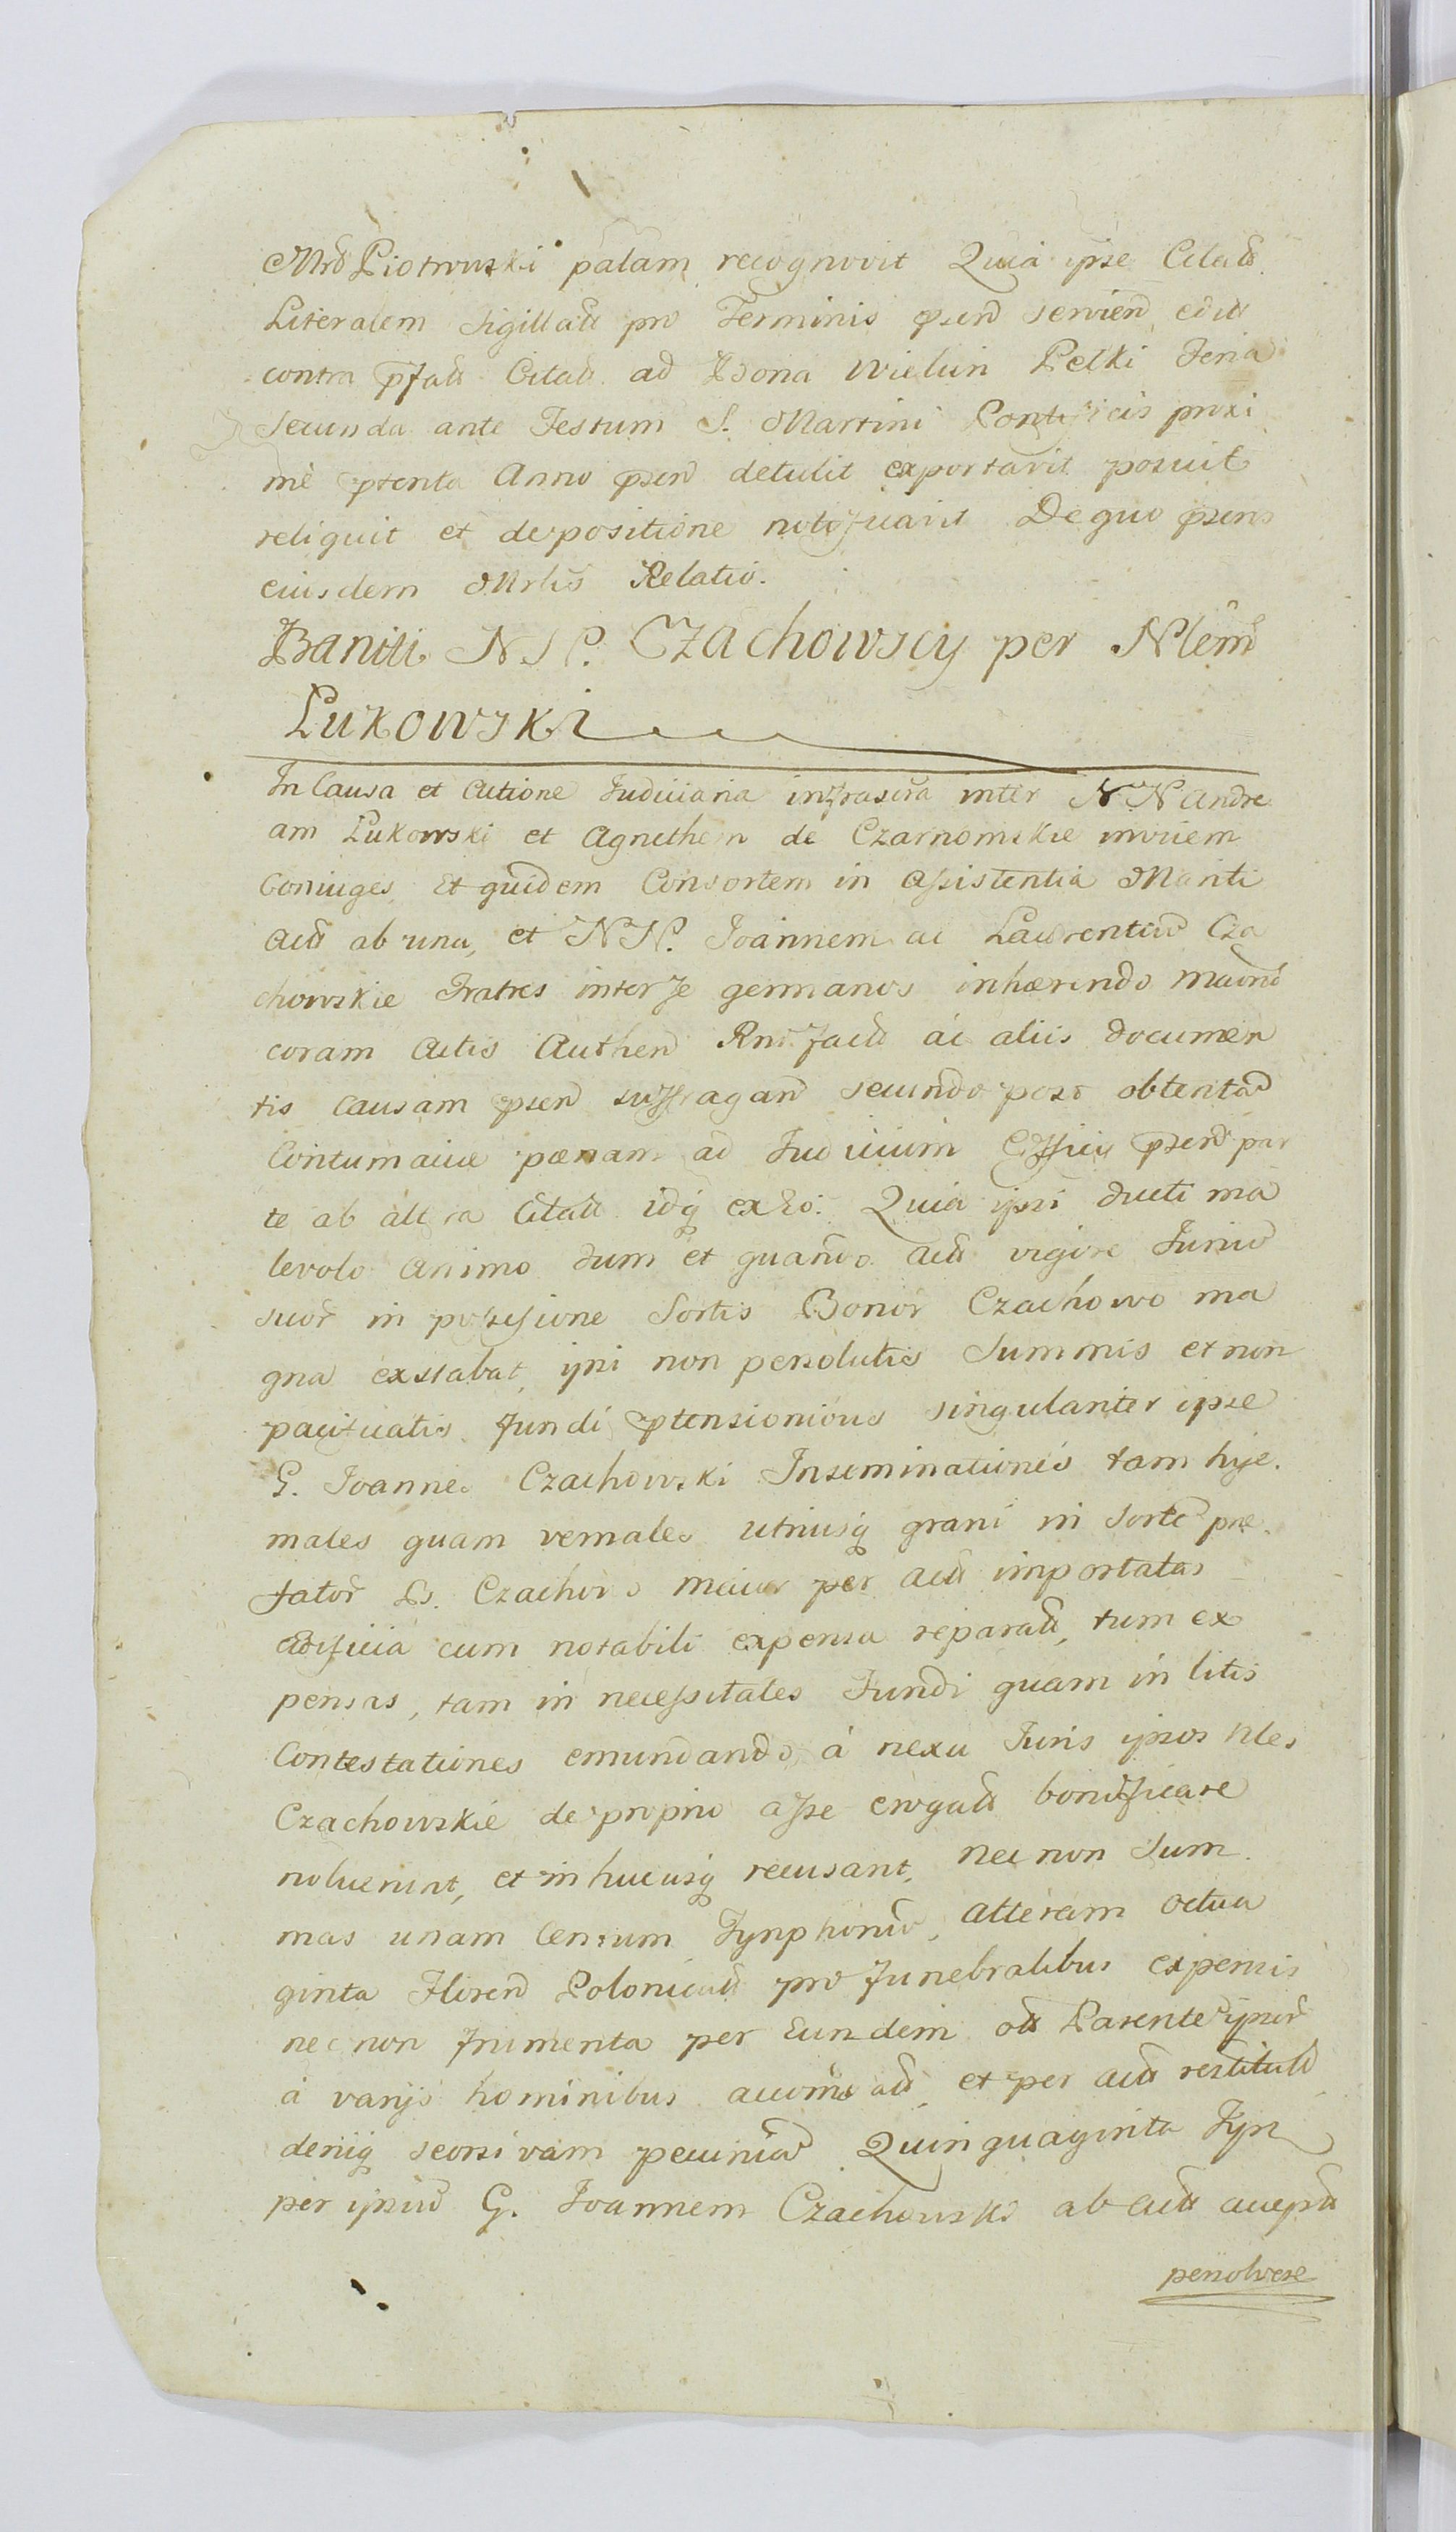 Mrd Piotrowski palam recognovit Quia ipse Citaõ
Literalem Sigillatt pro Terminis psend serviend edit
contra pfatt Citatt ad Bona Wielun Pelki Feria
Secunda ante Festum S. Martini Pontificis proxi
me ptenta Anno psend detulit exportavit posuit
reliquit et depositione notificavit De quo psens
eiusdem Mrlis Relatio.
Baniti N. N. Czachowscy per Nlem
Lukowski
In Causa et Actione Judiciaria infrascra inter N N Andre
am Lukowski et Agnethem de Czarnomskie invicem
Coniuges, Et quidem Consortem in Assistentia Mariti
Actt ab una, et N N. Joannem ac Laurentiũ Cza
chowskie Fratres inter se germanos inhærendo
coram Actis Authen factt ac aliis documen
tis causam psend suffragand secundo post obtentã
Contumaciæ pœnam ad Judicium Officii psend par
te ab altera Citatt idq ex eo: Quia ipsi ducti ma
levolo Animo dum et quando Actt vigore Juriũ
suor in possessione Sortis Bonor Czachowo ma
gna exstabat, ipsi non persolutis Summis et non
pacificatis fundi ptensionibus singulariter ipse
G. Joannes Czachowski Inseminationes tam hye.
males quam vernales utriusq grani in Sorte præ.
fator Czachowo per Actt importatas
ædificia cum notabili expensa reparatt, tum ex
pensas, tam in necessitates Fundi quam in litis
Contestationes emundando à nexu Juris ipsos Nles
Czachowskie de proprio asse erogatt bonificare
noluerunt, et in hucusq recusant, nec non Sum
mas unam Centum Tynphonũ, alteram octua
ginta Floren Polonicatt pro funebralibus expensis
nec non frumenta per Eundem ott Parente ipsor
à varijs hominibus accomodatt, et per Actt restitutt
deniq seorsivam pecuniã Quinquaginta Tynf
per ipsum G. Joannem Czachowski ab Actt acceptt
persolvere